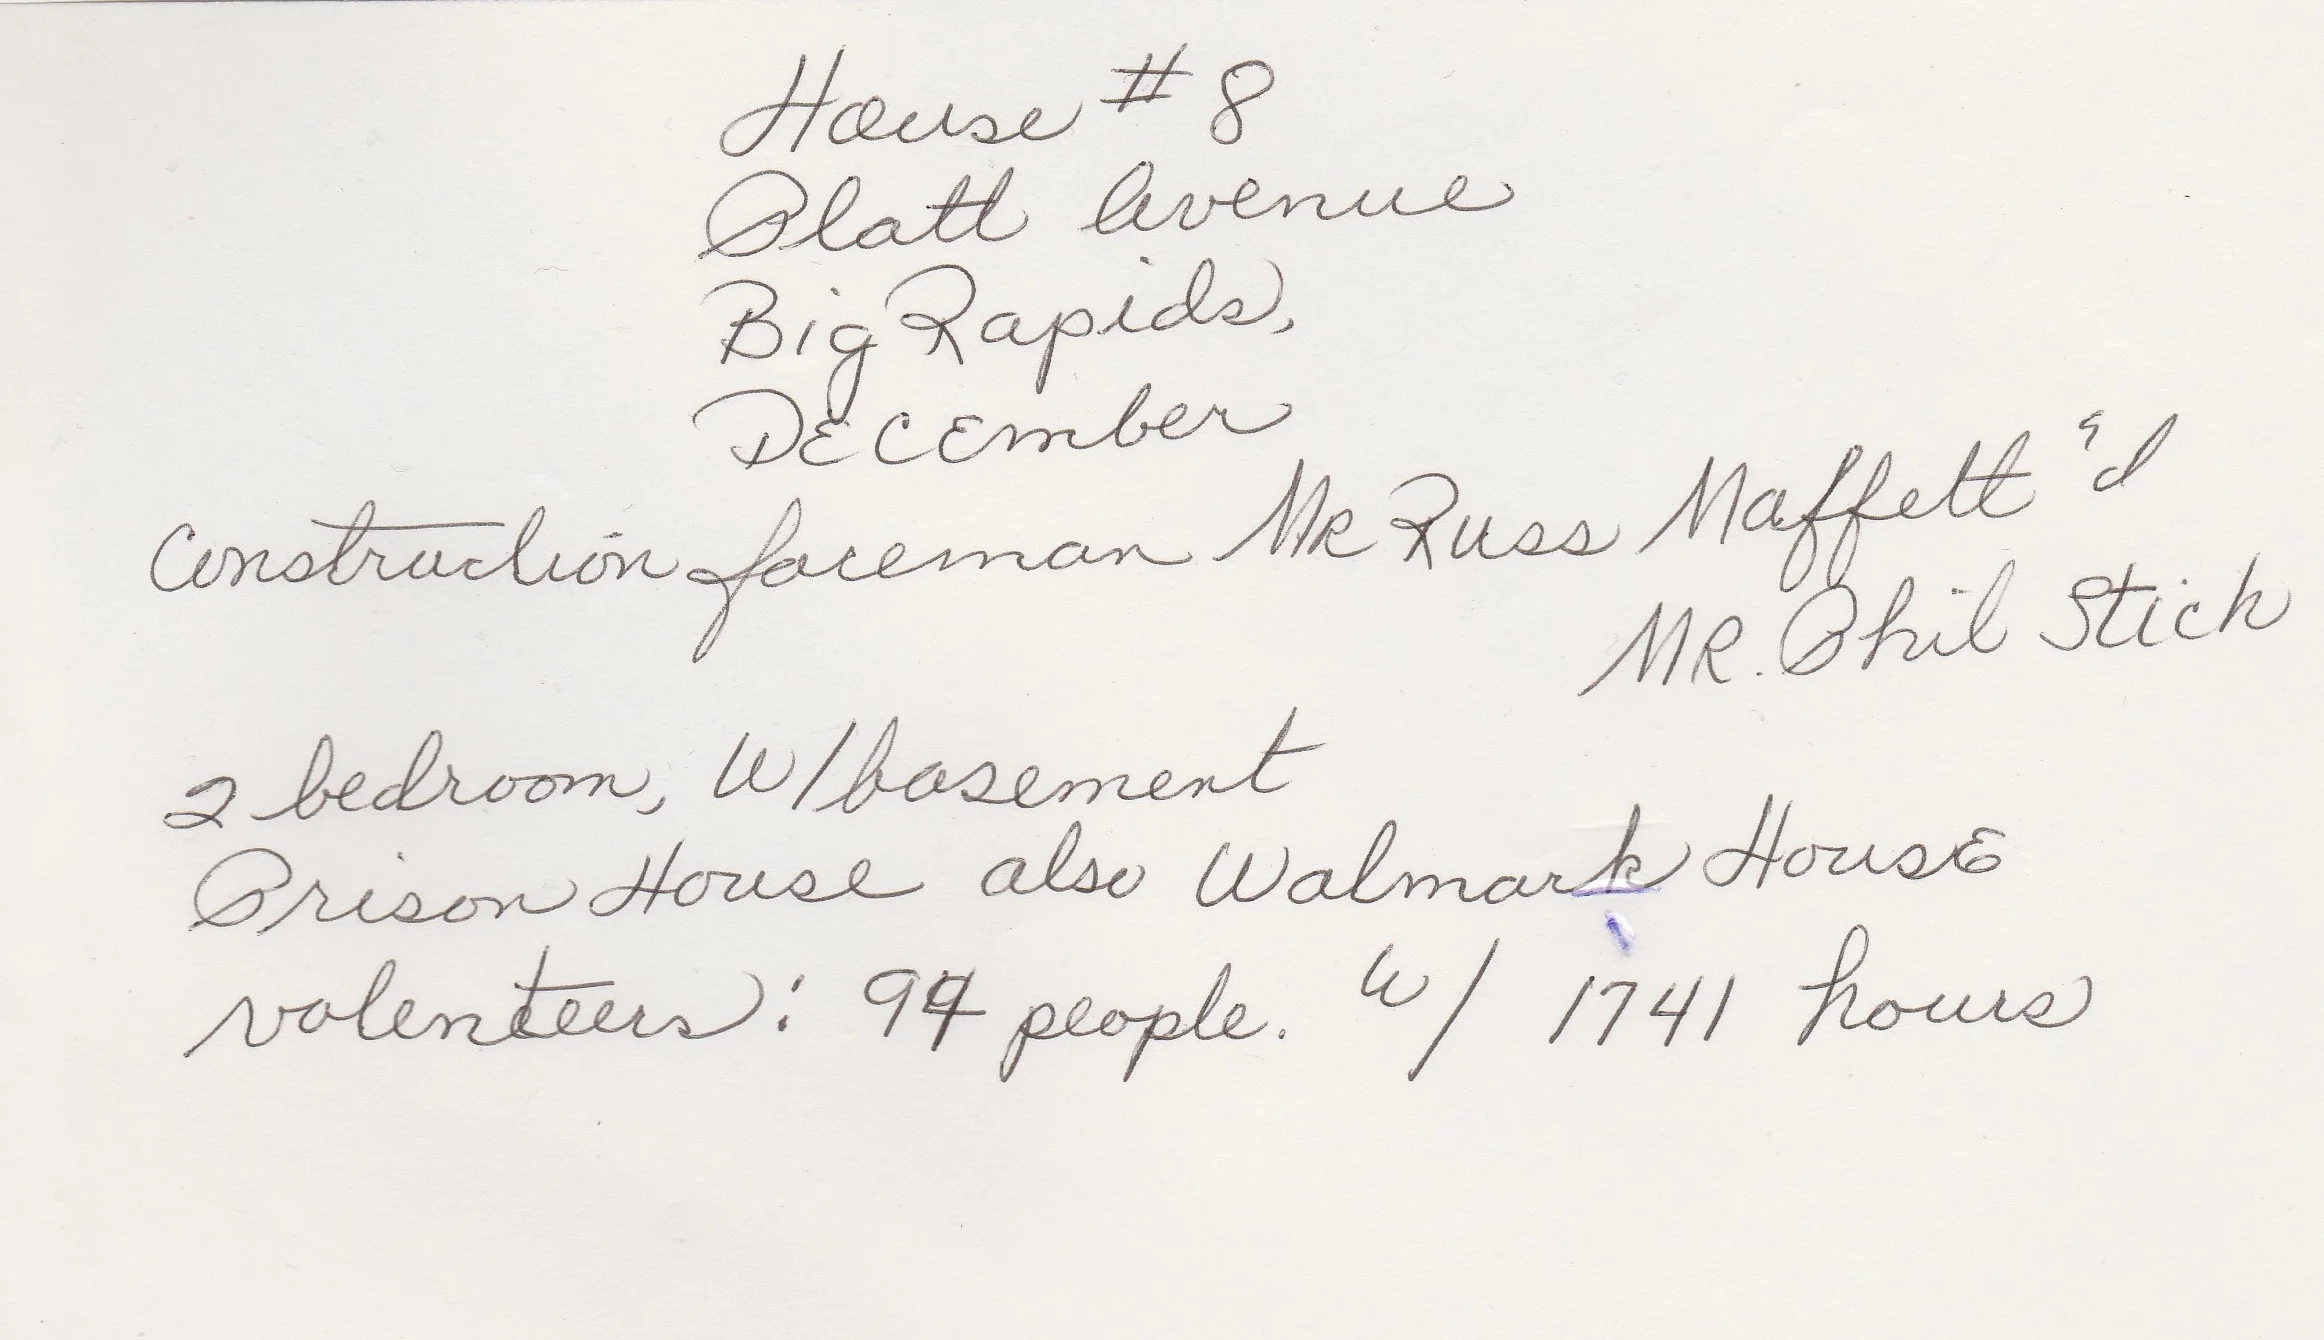 House # 8
Platt Avenue
Big Rapids,
December
Construction foreman Mr Russ Maffett &
MR. Phil Stick
2 bedroom, W/basement
Prison House also Walmark House
volenteers: 94 people. W/ 1741 hours